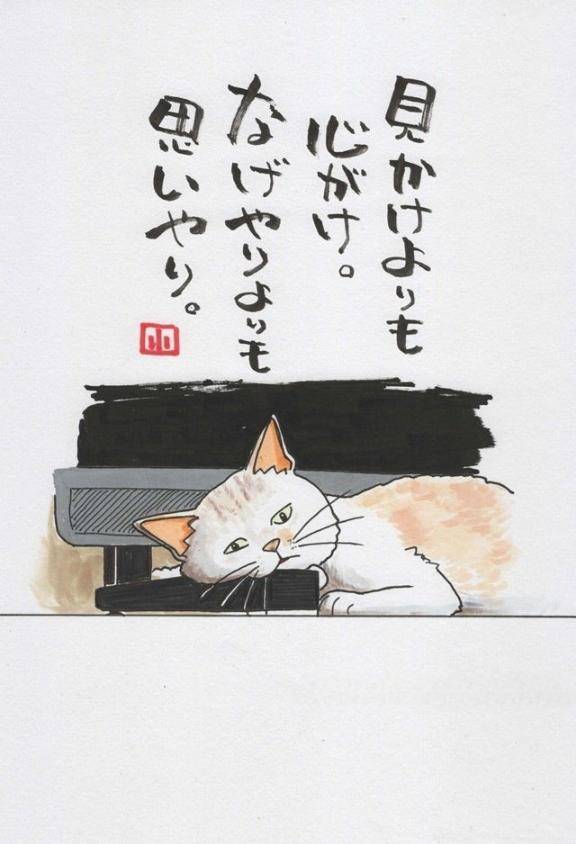 見かけよりも
心がけ。
なげやりよりも
思いやり。